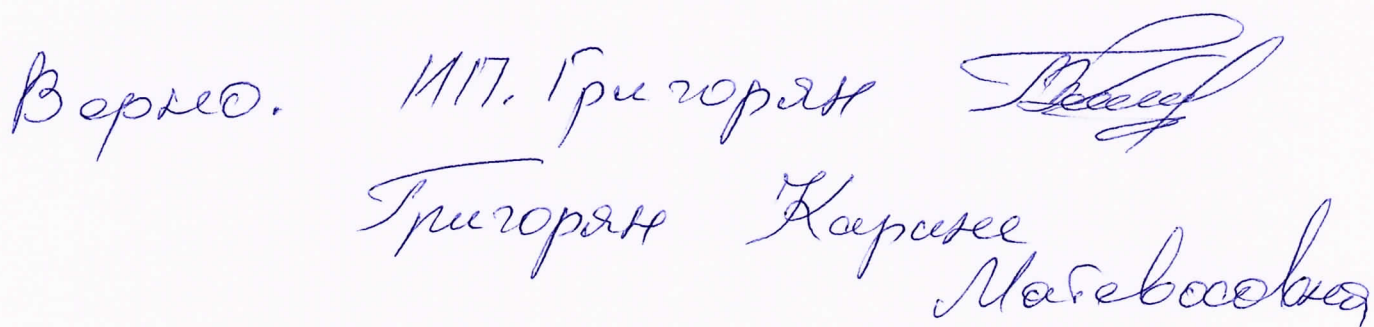 Верно. ИП. Григорян
Григорян Карине
Матевосовна